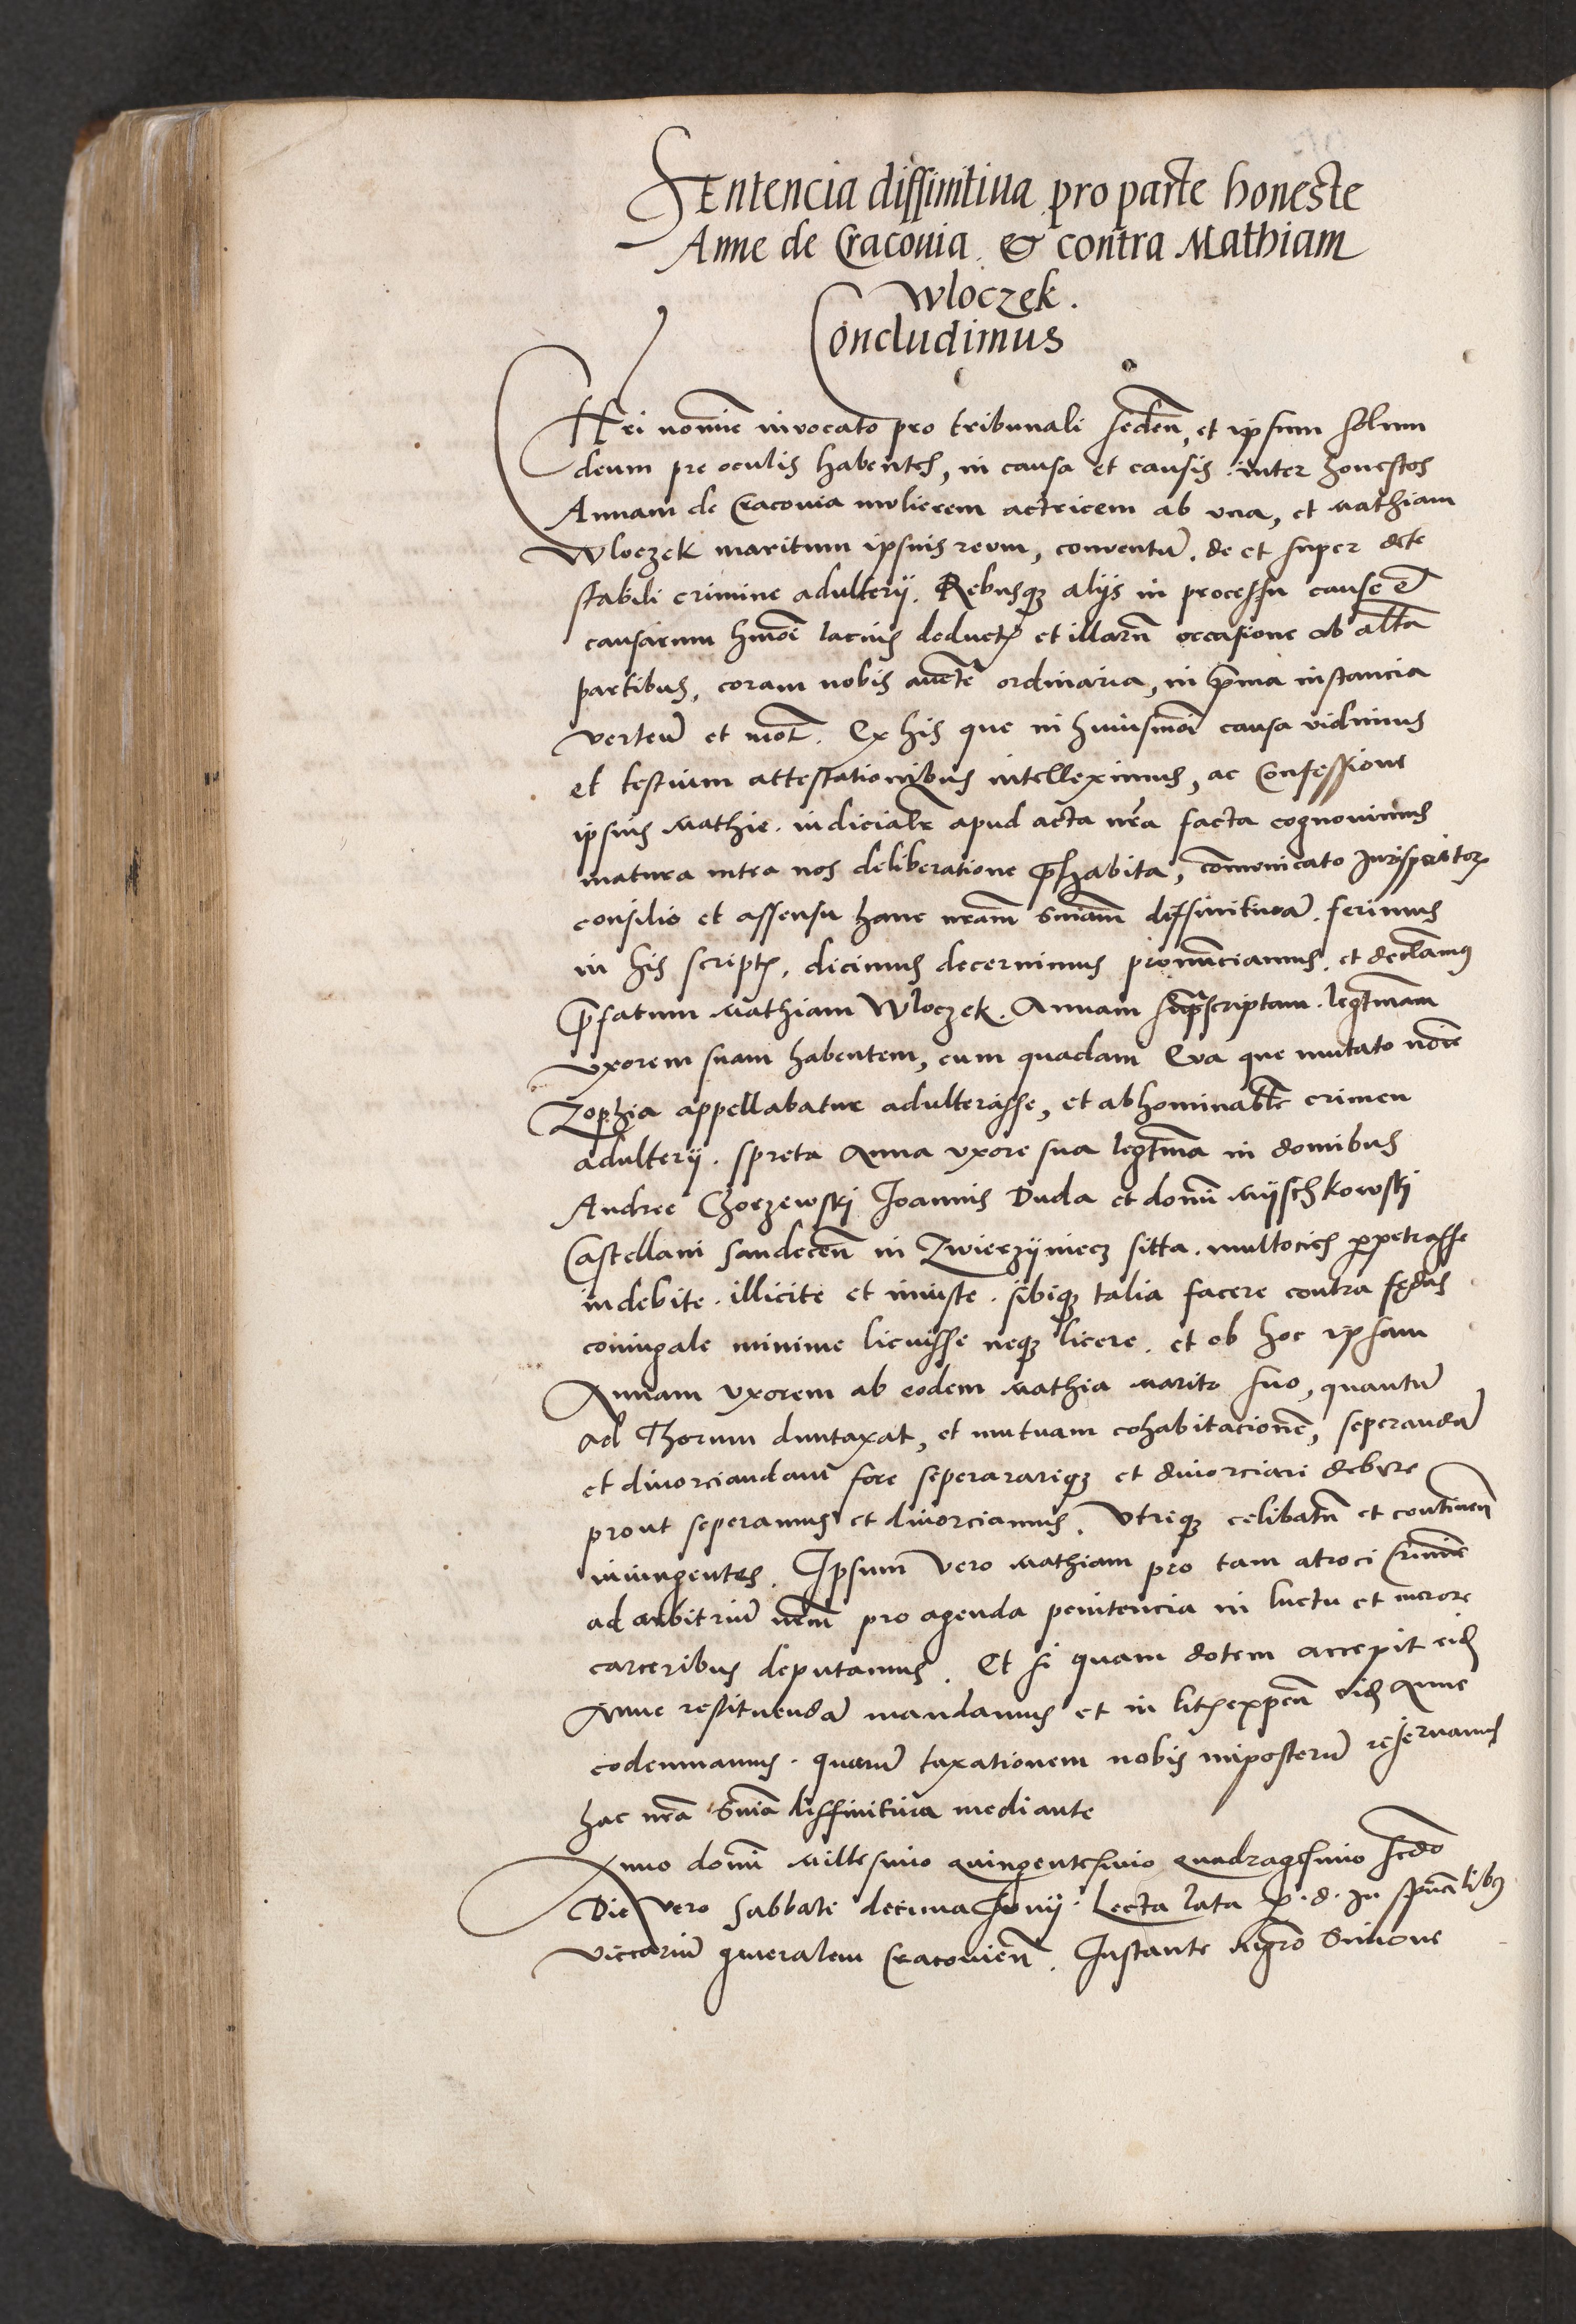 Sentencia diffinitiua pro parte honeste
Anne de Cracouia & contra Mathiam
Wloczek.
Concludimus
Chri nomine inuocato pro tribunali seden, et ipsum solum
deum pre oculis habentes, in causa et causis inter honestos
Annam de Cracouia mulierem actricem ab vna, et Mathiam
Wloczek maritum ipsius reum, conuentum. de et super dete
stabili crimine adulterij. Rebusque alijs in processu cause et
causarum hmoi lacius deductis et illarum occasione ab altra
partibus, coram nobis aucte ordinaria, in prima instancia
verteñ et mot. Ex his que in huiusmoi causa vidimus
et testium attestationibus intelleximus, ac Confessione
ipsius Mathie. iudicialr apud acta nra facta cognouimus
matura intra nos deliberatione prehabita, communicato Jurisperitorum
consilio et assensu hanc nram sniam diffinituam. ferimus
in his scriptis, dicimus decernimus pronunciamus. et declamus
prefatum Mathiam Wloczek. Annam suprascriptam. legtimam
vxorem suam habentem, cum quadam Eua que mutato noie
Zophia appellabatur adulterasse, et abhominable crimen
adulterij. spreta Anna vxore sua legtima in domibus
Andree Choczewskj Joannis Duda et domini Mijschkowskj
Castellani Sandeceñ in Zwierzijniecz sitta. multocies perpetrasse
indebite. illicite et iniuste. sibique talia facere contra fędus
coniugale minime licuisse neque licere. et ob hoc ipsam
Annam vxorem ab eodem Mathia Marito suo, quantum
ad Thorum duntaxat, et mutuam cohabitacionem, seperandam
et diuorciandam fore seperararique et diuorciari debere
prout seperamus et diuorciamus. Vtrique celibatum et contineñ
iniungentes. Ipsum vero Mathiam pro tam atroci Crimine
ad arbitrium nrum pro agenda penitencia in luctu et merore
carceribus deputamus. Et si quam dotem accepit eidem
Anne restituendam mandamus et in litis expeñ eidem Anne
codemnamus. quarum taxationem nobis inposterum reseruamus
hac nra snia diffinitiua mediante
Anno domini Millesimo quingentesimo quadragesimo scdo
Die Vero Sabbati decima Junij. Lecta lata p. d. in spualibus
viccarium generalem Cracouieñ. Instante Mgro Simone